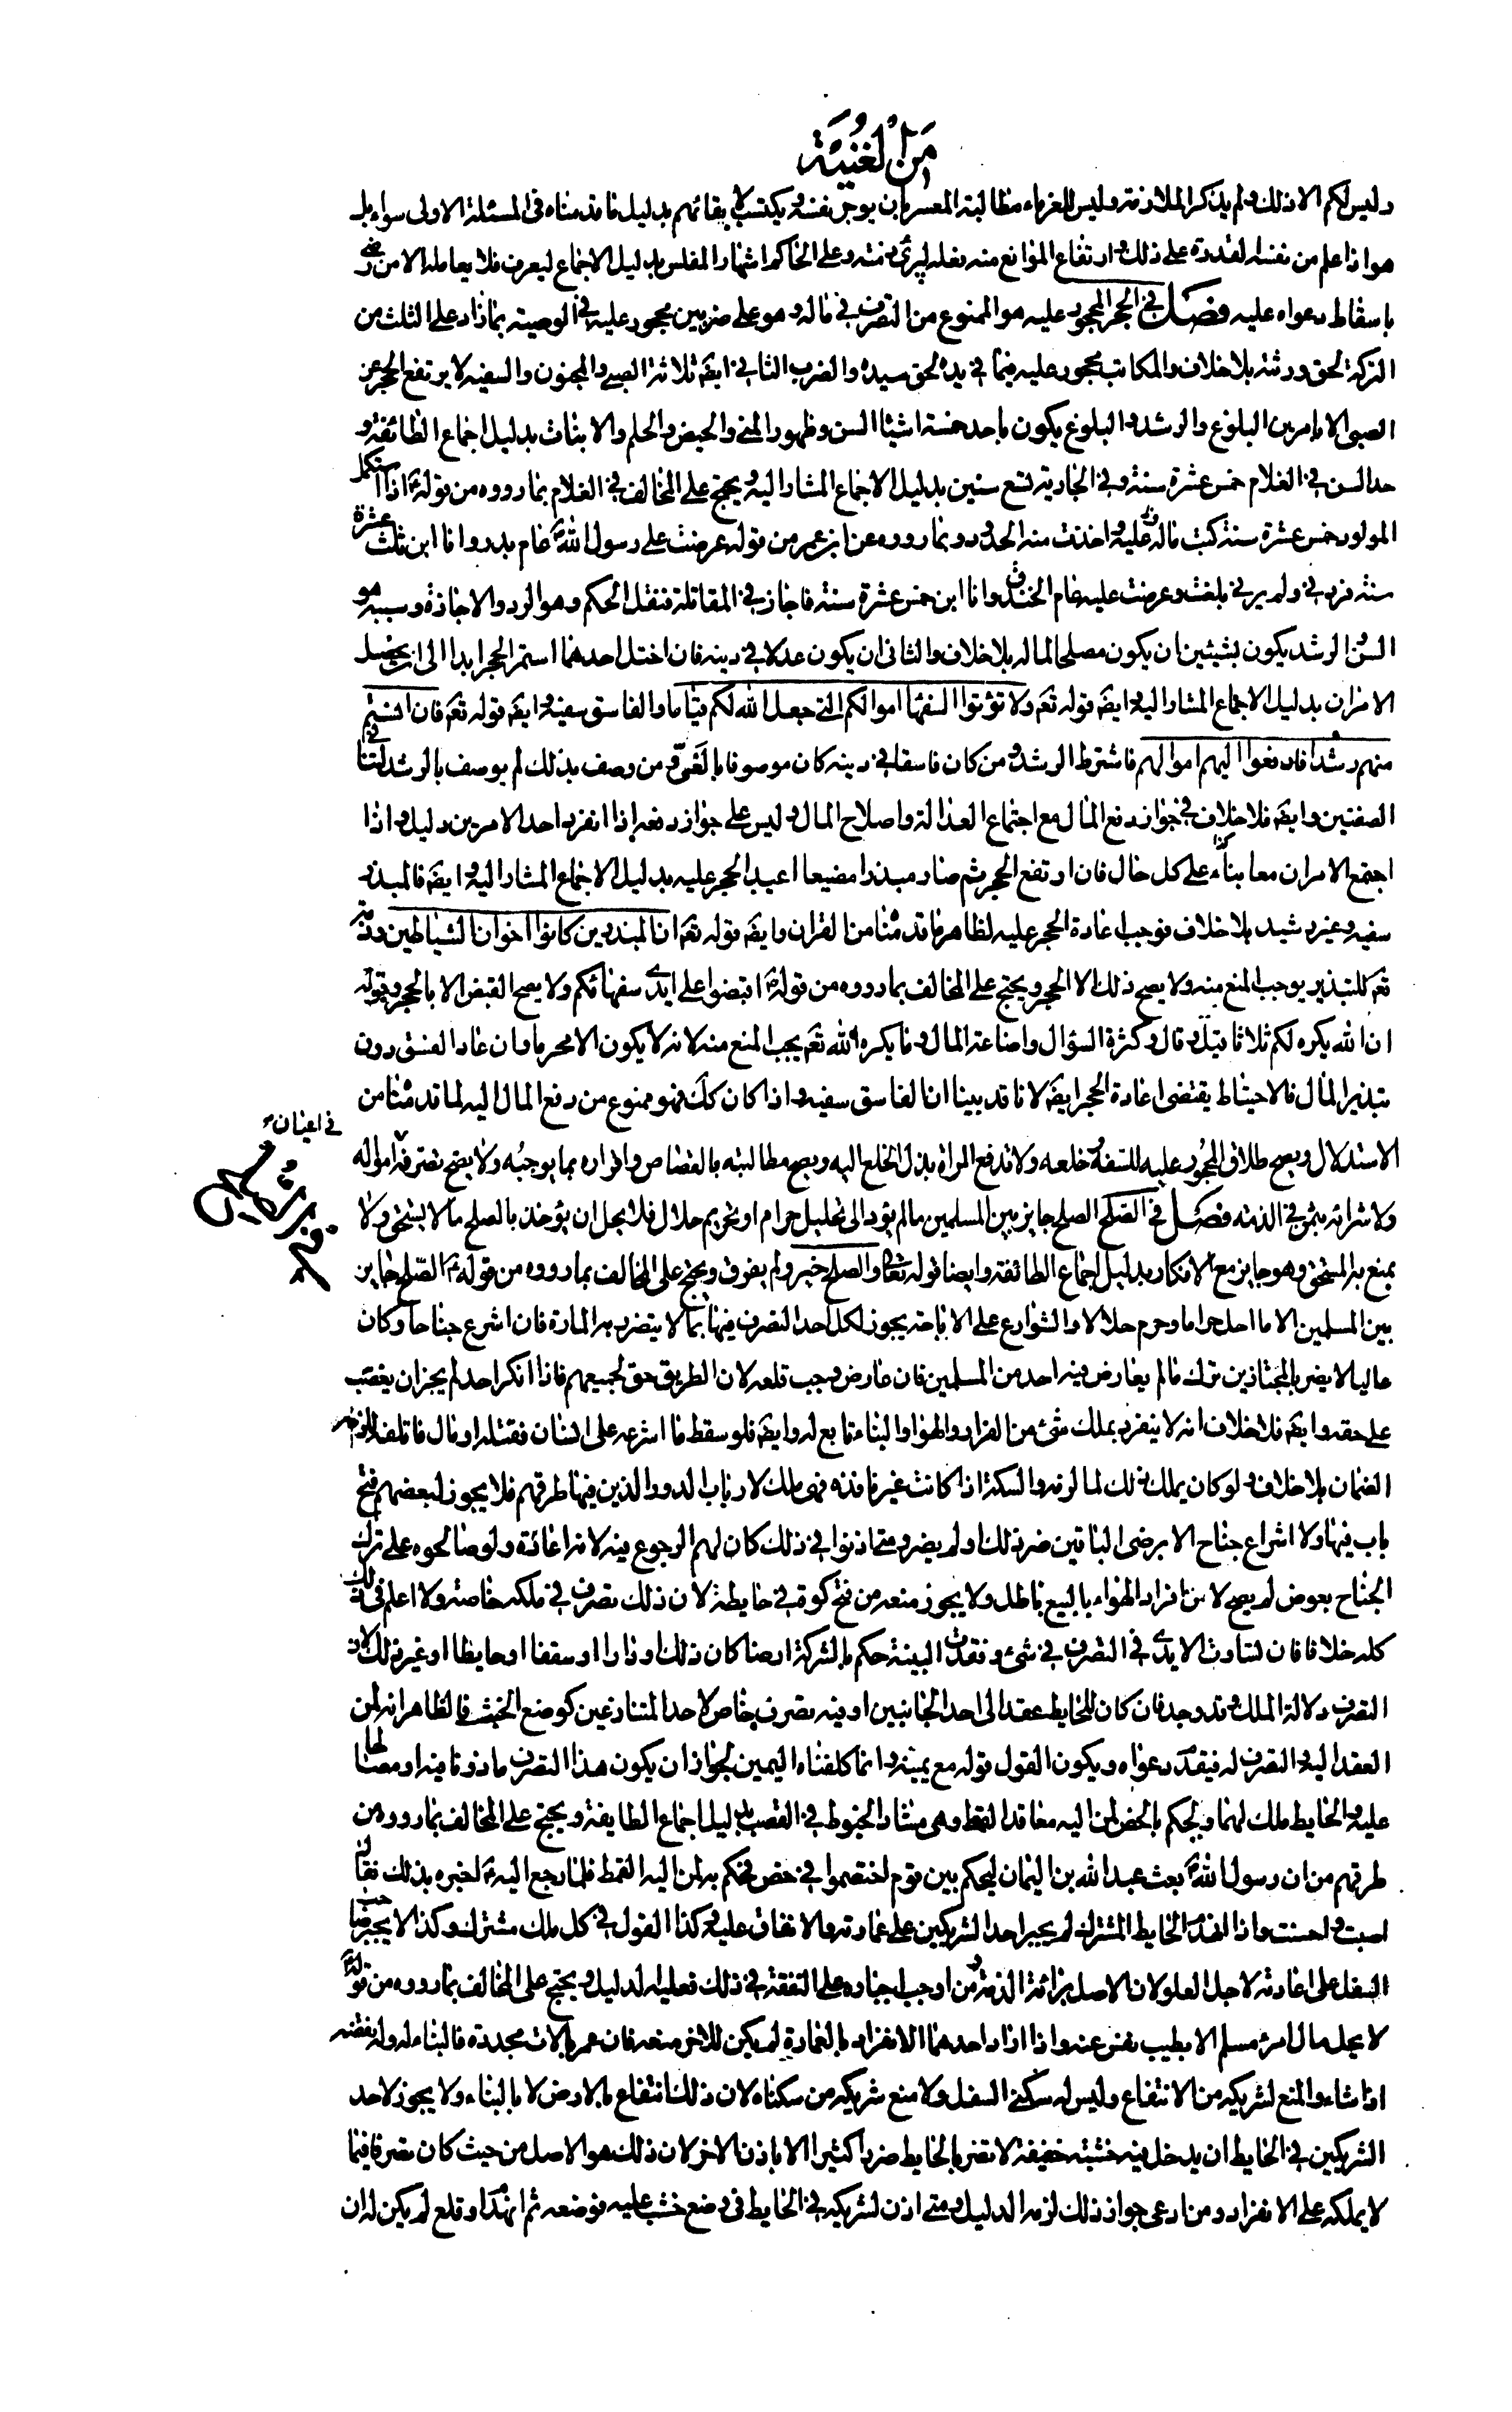 من الغنية
وليس لكم الا ذلك ولم يذكر الملازمة وليس للغرماء مطالبة المعسر بان يوجر نفسه ويكتسب لايقائهم بدليل ما قدمناه في المسئلة الاولى سواء بل
هو اذا علم من نفسه القدرة على ذلك وارتفاع الموانع منه فعله ليبرئ ذمته وعلى الحاكم اشهار المفلس بدليل الاجماع ليعرف فلا يعامله الا من رضي
باسقاط دعواه عليه فصل في الحجر المحجور عليه هو الممنوع من التصرف في ماله وهو على ضربين محجور عليه في الوصية بما زاد على الثلث من
التركة لحق ورثته بلا خلاف والمكاتب محجور عليه فيما في يده لحق سيده والضرب الثاني ايضَ ثلاثة الصبي والمجنون والسفيه لا يرتفع الحجر عن
الصبى الا بامرين البلوغ والرشد والبلوغ يكون باحد خمسة اشياء السن وظهور المني والحيض والحلم والانبات بدليل اجماع الطائفة و
حد السن في الغلام خمس عشرة سنة وفي الجارية تسع سنين بدليل الاجماع المشار اليه ويحتج على المخالف في الغلام بما رووه من قوله ع اذا استكمل
المولود خمس عشرة سنة كتب ماله وما عليه واخذت منه الحدود وبما رووه عن ابن عمر من قوله عرضت على رسول الله ص عام بدر وانا ابن ثلث عشرة
سنة فردني ولم يرني بلغت وعرضت عليه عام الخندق وانا ابن خمس عشرة سنة فاجازني في المقاتلة فنقل الحكم وهو الرد والاجازة وسببه هو
السن والرشد يكون بشيئين ان يكون مصلحا لماله بلا خلاف والثانى ان يكون عدلا في دينه فان اختل احدهما استمر الحجر ابدا الى ان يحصل
الامران بدليل الاجماع المشار اليه وايضَ قوله تعَ ولا تؤتوا السفهاء اموالكم التي جعل الله لكم قياما والفاسق سفيه وايضَ قوله تعَ فان انستم
منهم رشدا فادفعوا اليهم اموالهم فاشترط الرشد ومن كان فاسقا في دينه كان موصوفا بالغى ومن وصف بذلك لم يوصف بالرشد لتنافي
الصفتين وايضَ فلا خلاف في جواز دفع المال مع اجتماع العدالة واصلاح المال وليس على جواز دفعه اذا انفرد احد الامرين دليل واذا
اجتمع الامران معا بناء على كل حال فان ارتفع الحجر ثم صار مبذرا مضيعا اعيد الحجر عليه بدليل الاجماع المشار اليه وايضَ فالمبذر
سفيه وغير رشيد بلا خلاف فوجب اعادة الحجر عليه لظاهر ما قدمنا من القران وايضَ قوله تعَ ان المبذرين كانوا اخوان الشياطين وذمه
تعَ للتبذير يوجب المنع منه ولا يصح ذلك الا الحجر ويحتج على المخالف بما رووه من قوله ع اقبضوا على ايدي سفهائكم ولا يصح القبض الا بالحجر وقوله
ان الله يكره لكم ثلاثا قيل وقال وكثرة السؤال واضاعة المال وما يكره الله تعَ يجب المنع منه لانه لا يكون الا محرما وان عاد الفسق دون
تبذير المال فالاحتياط يقتضى اعادة الحجر ايضَ لانا قد بينا ان الفاسق سفيه واذا كان كلك فهو ممنوع من دفع المال اليه لما قدمنا من
في اعيان
الاستدلال ويصح طلاق المحجور عليه للسفه وخلعه ولا تدفع المراة بذل الخلع اليه ويصح مطالبته بالقصاص واقراره بما يوجبه ولا يصح تصرفه امواله
ولا شرائه بثمن في الذمة فصل في الصلح الصلح جايز بين المسلمين ما لم يؤد الى تحليل حرام او تحريم حلال فلا يحل ان يؤخذ بالصلح ما لا يستحق ولا
يمنع به المستحق وهو جايز مع الانكار بدليل اجماع الطائفة وايضا قوله تعالى والصلح خير ولم يفرق ويحتج على المخالف بما رووه من قوله ع الصلح جايز
بين المسلمين الا ما احل حراما وحرم حلالا والشوارع على الاباحة يجوز لكل احد التصرف فيها بما لا يتضرر به المارة فان اشرع جناحا وكان
عاليا لا يضر بالمجتازين ترك ما لم يعارض فيه احد من المسلمين فان عارض وجب قلعه لان الطريق حق لجميعهم فاذا انكر احد لم يجز ان يغصب
على حقه وايضَ فلا خلاف انه لا ينفرد بملك شئ من القرار والهواء والبناء تابع له وايضَ فلو سقط ما اشرعه على انسان فقتله او مال فاتلفه للزمه
الضمان بلا خلاف ولو كان يملك ذلك لما لزمه والسكة اذا كانت غير نافذه فهى ملك لارباب الدور الذين فيها طرقهم فلا يجوز لبعضهم فتح
باب فيها ولا اشراع جناح الا برضى الباقين ضر ذلك او لم يضر ومتى اذنوا في ذلك كان لهم الرجوع فيه لانه اعارة ولو صالحوه على ترك
الجناح بعوض لم يصح لان افراد الهواء بالبيع باطل ولا يجوز منعه من فتح كوة في حايطه لان ذلك تصرف في ملكه خاصة ولا اعلم في ذلك
كله خلافا فان تساوت الايدي في التصرف في شئ وفقدت البينة حكم بالشركة ارضا كان ذلك او دارا او سقفا او حايطا او غير ذلك لان
التصرف دلالة الملك وقد وجد فان كان للحايط عقد الى احد الجانبين او فيه تصرف خاص لاحد المتنازعين كوضع الخشب فالظاهر انه لمن
العقد اليه والتصرف له فيقدم دعواه ويكون القول قوله مع يمينه وانما كلفناه اليمين لجواز ان يكون هذا التصرف ماذونا فيه او مصالحا
عليه والحايط ملك لهما ويحكم بالخص لمن اليه معاقد القمط وهى مشاد الخيوط في القصب بدليل اجماع الطايفة ويحتج على المخالف بما رووه من
طرقهم من ان رسول الله ص بعث عبد الله بن اليمان ليحكم بين قوم اختصموا في خص فحكم به لمن اليه القمط فلما رجع اليه ع اخبره بذلك فقال له
اصبت واحسنت واذا انهدم الحايط المشترك لم يجبر احد الشريكين على عمارته والانفاق عليه وكذا القول في كل ملك مشترك وكذا لا يجبر صاحب
السفل على اعادته لاجل العلو لان الاصل برائة الذمة ومن اوجب اجباره على النفقة في ذلك فعليه الدليل ويحتج على المخالف بما رووه من قوله ع
لا يحل مال امرئ مسلم الا بطيب نفس عنه واذا اراد احدهما الانفراد بالعمارة لم يكن للاخر منعه فان عمر بالات مجددة فالبناء له وله نقضه
اذا شاء والمنع لشريكه من الانتفاع وليس له سكنى السفل ولا منع شريكه من سكناه لان ذلك انتفاع بالارض لا بالبناء ولا يجوز لاحد
الشريكين في الحايط ان يدخل فيه خشبة خفيفة لا تضر بالحايط ضررا كثيرا الا باذن الاخر لان ذلك هو الاصل من حيث كان تصرفا فيما
لا يملكه على الانفراد ومن ادعى جواز ذلك لزمه الدليل ومتى اذن لشريكه في الحايط فى وضع خشب عليه فوضعه ثم انهدم او قلع لم يكن له ان